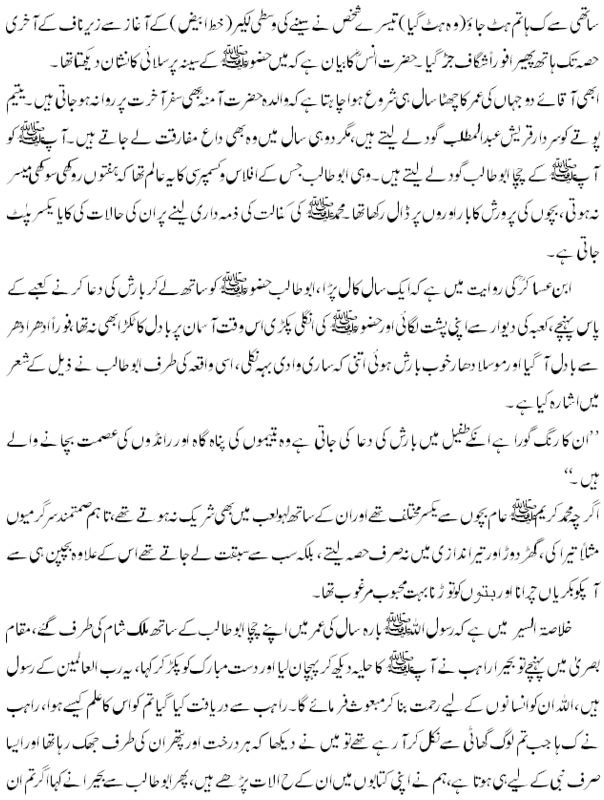 ساتھی سے ک ہا تم ہٹ جاؤ (وہ ہٹ گیا) تیسرے شخص نے سینے کی وسطی لکیر (خط ابیض) کے آغاز سے زیر ناف کے آخری
حصہ تک ہاتھ پھیرا فوراً شگاف جڑ گیا ۔ حضرت انسؓ کا بیان ہے کہ میں حضور ﷺ کے سینہ پر سلائی کا نشان دیکھتا تھا۔
ابھی آقائے دو جہاں کی عمر کا چھٹا سال ہی شروع ہوا چاہتا ہے کہ والدہ حضرت آمنہ بھی سفر آخرت پر روانہ ہو جاتی ہیں ۔ یتیم
پوتے کو سردار قریش عبدالمطلب گود لے لیتے ہیں، مگر دو ہی سال میں وہ بھی داغ مفارقت لے جاتے ہیں۔ آپ ﷺ کو
آپ ﷺ کے چچا ابوطالب گود لے لیتے ہیں ۔ وہی ابوطالب جس کے افلاس و کسمپرسی کا یہ عالم تھا کہ ہفتوں روکھی سوکھی میسر
نہ ہوتی ، بچوں کی پرورش کا بار اوروں پر ڈال رکھا تھا۔ محمد ﷺ کی کفالت کی ذمہ داری لینے پر ان کی حالات کی کایا یکسر پلٹ
جاتی ہے۔
ابن عساکرؒ کی روایت میں ہے کہ ایک سال کال پڑا ، ابوطالب حضور ﷺ کو ساتھ لے کر بارش کی دعا کرنے کعبے کے
پاس پہنچے ، کعبہ کی دیوار سے اپنی پشت لگائی اور حضور ﷺ کی انگلی پکڑی اس وقت آسمان پر بادل کا ٹکڑا بھی نہ تھا ، فوراً ادھر ادھر
سے بادل آ گیا اور موسلا دھار خوب بارش ہوئی اتنی کہ ساری وادی بہہ نکلی ، اسی واقعہ کی طرف ابوطالب نے ذیل کے شعر
میں اشارہ کیا ہے ۔
’’ان کا رنگ گورا ہے انکے طفیل میں بارش کی دعا کی جاتی ہے وہ یتیموں کی پناہ گاہ اور رانڈوں کی عصمت بچانے والے
ہیں ۔‘‘
اگرچہ محمد کریم ﷺ عام بچوں سے یکسر مختلف تھے اور ان کے ساتھ لہو لعب میں بھی شریک نہ ہوتے تھے ، تاہم صحتمند سرگرمیوں
مثلاً تیراکی ، گھڑ دوڑ اور تیراندازی میں نہ صرف حصہ لیتے ، بلکہ سب سے سبقت لے جاتے تھے اس کے علاوہ بچپن ہی سے
آپکو بکریاں چرانا اور بتوں کو توڑنا بہت محبوب مرغوب تھا۔
خلاصۃ السیر میں ہے کہ رسول اللہ ﷺ بارہ سال کی عمر میں اپنے چچا ابوطالب کے ساتھ ملک شام کی طرف گئے ، مقام
بصریٰ میں پہنچے تو بحیرا راہب نے آپ ﷺ کا حلیہ دیکھ کر پہچان لیا اور دست مبارک کو پکڑ کر کہا ، یہ رب العالمین کے رسول
ہیں ، اللہ ان کو انسانوں کے لیے رحمت بنا کر مبعوث فرمائے گا۔ راہب سے دریافت کیا گیا تم کو اس کا علم کیسے ہوا ، راہب
نے ک ہا جب تم لوگ گھاٹی سے نکل کر آ رہے تھے تو میں نے دیکھا کہ ہر درخت اور پتھر ان کی طرف جھک رہا تھا اور ایسا
صرف نبی کے لیے ہی ہوتا ہے ، ہم نے اپنی کتابوں میں ان کے ح الات پڑھے ہیں ، پھر ابوطالب سے بحیرا نے کہا اگر تم ان